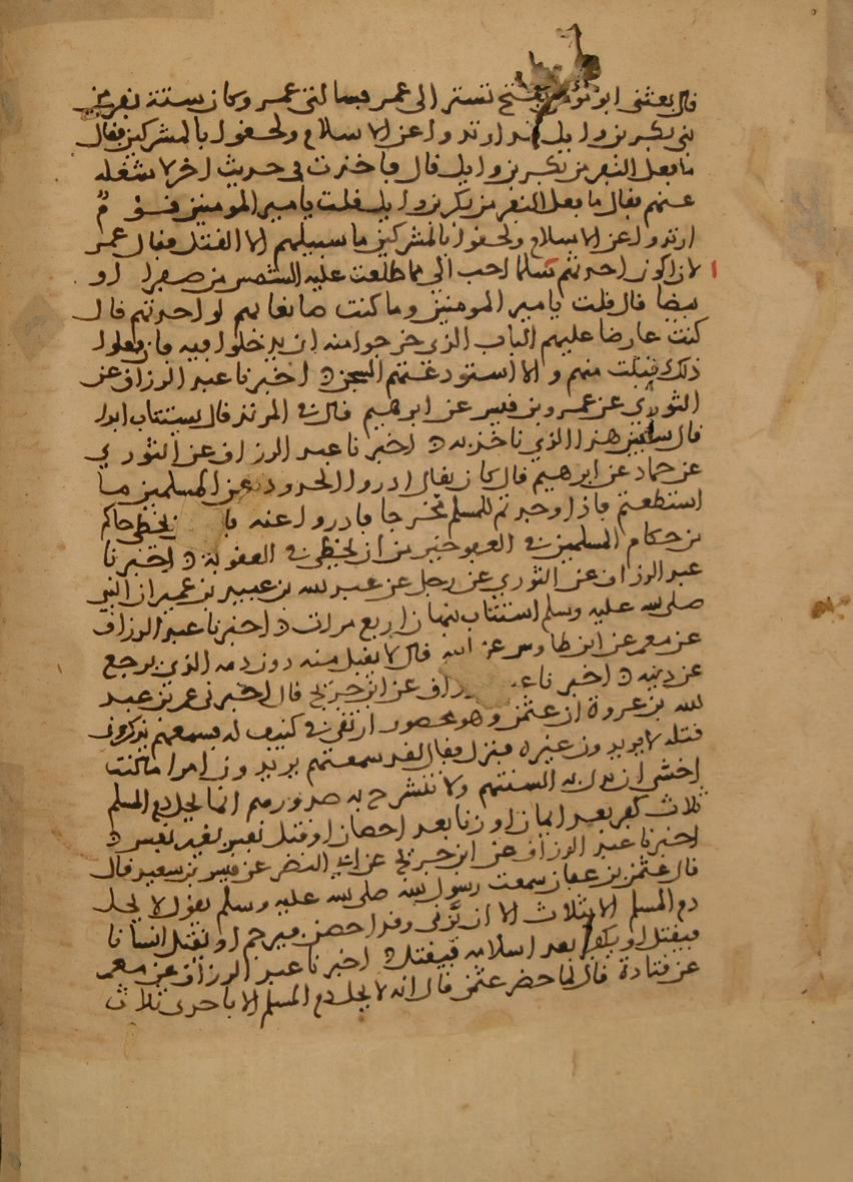 قال بعثني ابو موسى بفتح تستر الى عمر فسالني عمر وكان ستة نفر من
بني بكر بن وايل قد ارتدوا عن الاسلام ولحقوا بالمشركين فقال
ما فعل النفر من بكر بن وايل قال فاخذت في حديث اخر لاشغله
عنهم فقال ما فعل النفر من بكر بن وايل قلت يا امير المومنين قوم
ارتدوا عن الاسلام ولحقوا بالمشركين ما سبيلهم الا القتل فقال عمر
لان اكون اخذتهم سلما احب الي مما طلعت عليه الشمس من صفرا او
بيضا قال قلت يامير المومنين وما كنت صانعا بهم لو اخذتهم قال
كنت عارضا عليهم الباب الذي خرجوا منه ان يدخلوا فيه فان فعلوا
ذلك قبلت منهم والا استودعتهم السجن ه اخبرنا عبد الرزاق عن
الثوري عن عمرو بن قيس عن ابرهيم قال في المرتد قال يستتاب ابدا
قال سفين هذا الذي ناخذ به ه اخبرنا عبد الرزاق عن الثوري
عن حماد عن ابرهيم قال كان يقال ادروا الحدود عن المسلمين ما
استطعتم فاذا وجدتم للمسلم مخرجا فادروا عنه فا يخطي حاكم
من حكام المسلمين في العفو خير من ان يخطي في العقوبة ه اخبرنا
عبد الرزاق عن الثوري عن رجل عن عبد الله بن عبيد بن عمير ان النبي
صلى الله عليه وسلم استتاب نبهان اربع مرات ه اخبرنا عبد الرزاق
عن معمر عن ابن طاوس عن ابيه قال لا يقبل منه دون دمه الذي يرجع
عن دينه ه اخبرنا عـ رزاق عن ابن جريج قال اخبرني عمر بن عبد
الله بن عروة ان عثمن وهو محصور ارتقى في كنيف له فسمعهم يذكرون
قتله لا يريدون غيره فنزل فقال لقد سمعتهم يريدون امرا ما كنت
اخشى ان يدل به السنتهم ولا تنشرح به صدورهم انما يحل دم المسلم
ثلاث كفر بعد ايمان او زنا بعد احصان او قتل نفس بغير نفس ه
اخبرنا عبد الرزاق عن ابن جريج عن ابي النضر عن قيس بن سعيد قال
قال عثمن بن عفان سمعت رسول الله صلى الله عليه وسلم يقول لا يحل
دم المسلم الا بثلاث الا ان يزني وقد احصن فيرجم او يقتل انسانا
فيقتل او يكفر بعد اسلامه فيقتل ه اخبرنا عبد الرزاق عن معمر
عن قتادة قال لما حضر عثمن قال انه لا يحل دم المسلم الا باحدى ثلاث